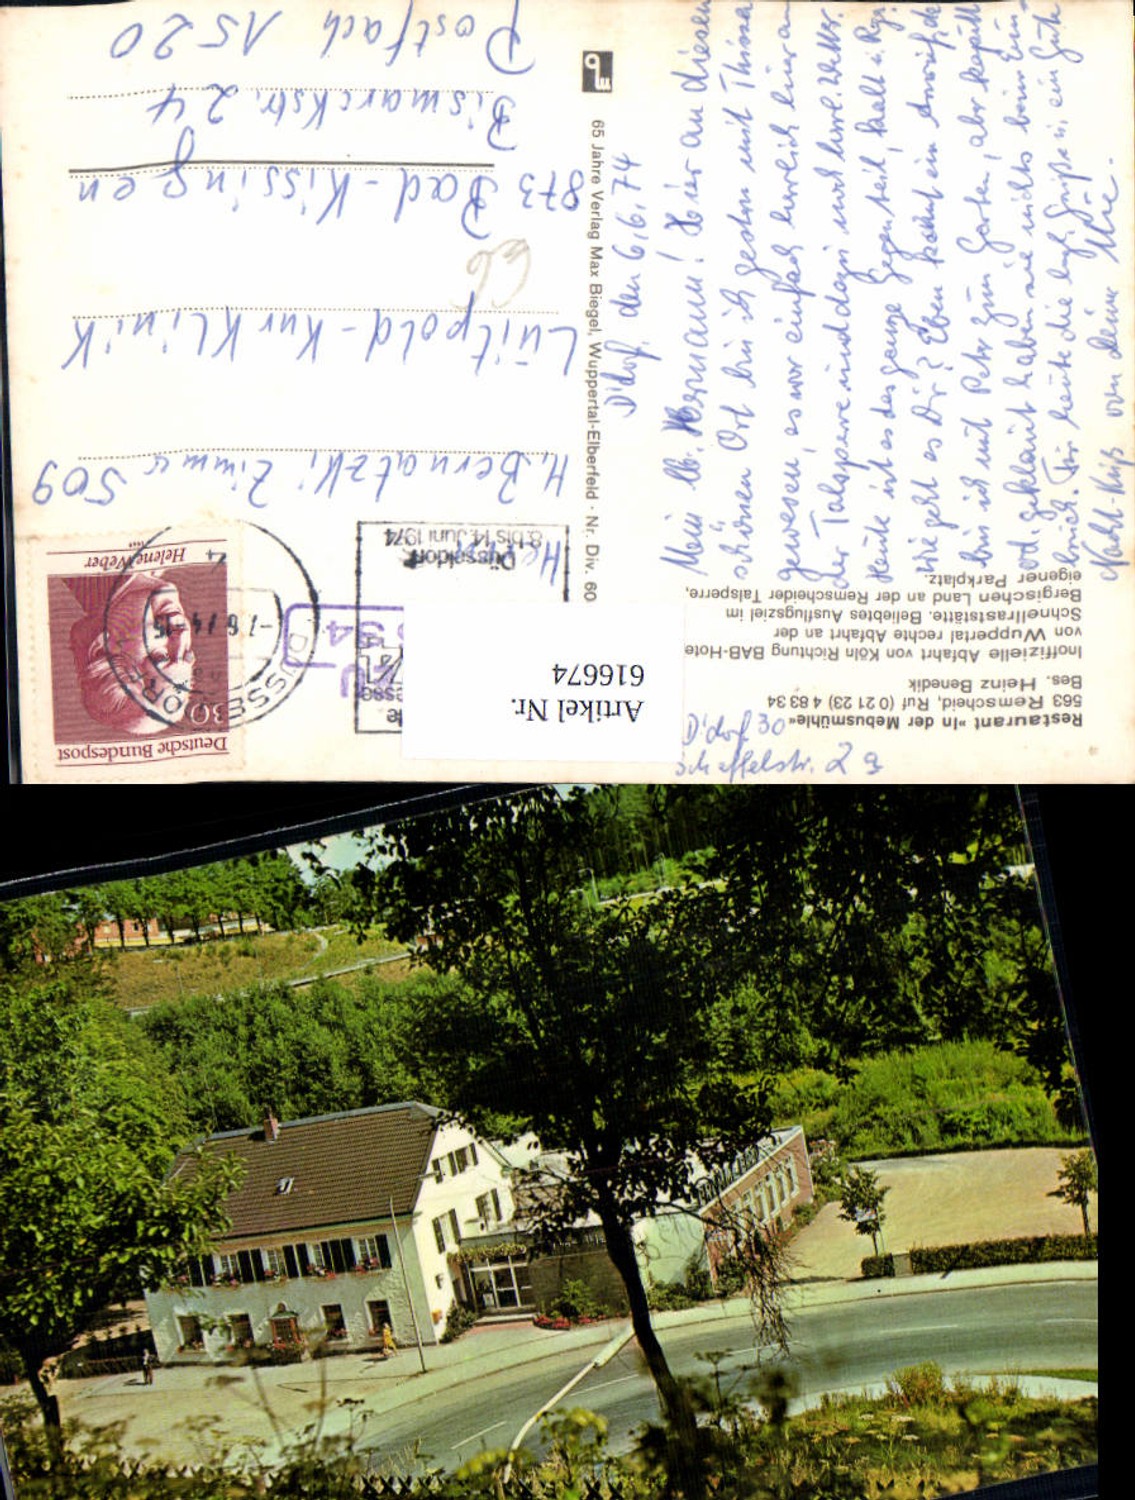 Restaurant »In der Mebusmühle«
563 Remscheid, Ruf (0 21 23) 4 83 34
Bes. Heinz Benedik
Inoffizielle Abfahrt von Köln Richtung BAB-Hote
von Wuppertal rechte Abfahrt an der
Schnellraststätte. Beliebtes Ausflugsziel im
Bergischen Land an der Remscheider Talsperre,
eigener Parkplatz.
D'dorf, den 6.6.74
Mein lb. Hermann! Hier an diesem
schönen Ort bin ich gestern mit
gewesen, es war einfach herrlich einmal
der Talsperre und dazu noch herrl. Wttr.
Heute ist es das ganze Gegenteil, kalt u. Rg.
Wie geht es Dir? Eben kommt ein Anruf, da
bin ich mit Peter zum Garten, aber kaputt
od. gekauft haben wir nichts beim
mich. Für heute die Grüße u. ein Gute
Nacht-Kuß von deine
65 Jahre Verlag Max Biegel, Wuppertal-Elberfeld · Nr. Div. 60
Deutsche Bundespost
30
Helene Weber
DÜSSELDORF
-7.6.74-15
Düsseldorf
8. bis 14. Juni 1974
Artikel Nr.
616674
H. Bernatzki Zimmer 509
Luitpold-Kurklinik
873 Bad-Kissingen
Bismarckstr. 24
Postfach 1520